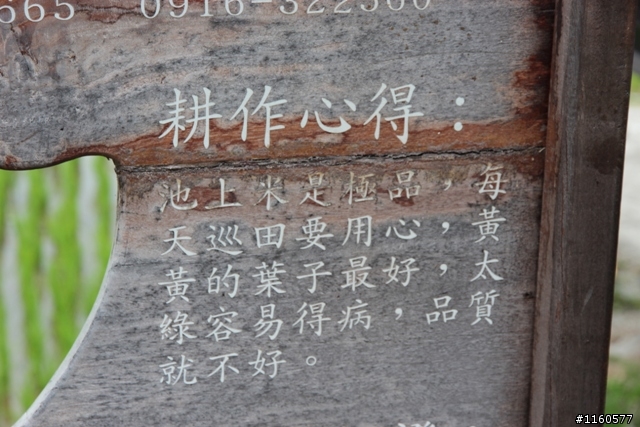 665 0916-322560
耕作心得：
池上米是極品，每
天巡田要用心，黃
黃的葉子最好，太
綠容易得病，品質
就不好。
#1160577